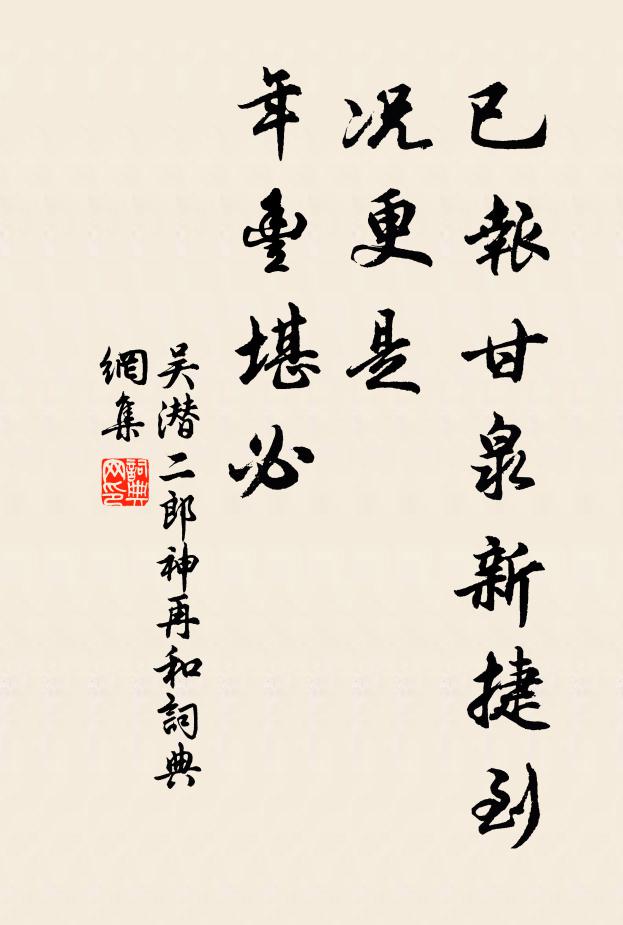 已報甘泉新捷到
况更是
年豊堪必
吴潛二郎神再和詞典
網集
詞典
网印